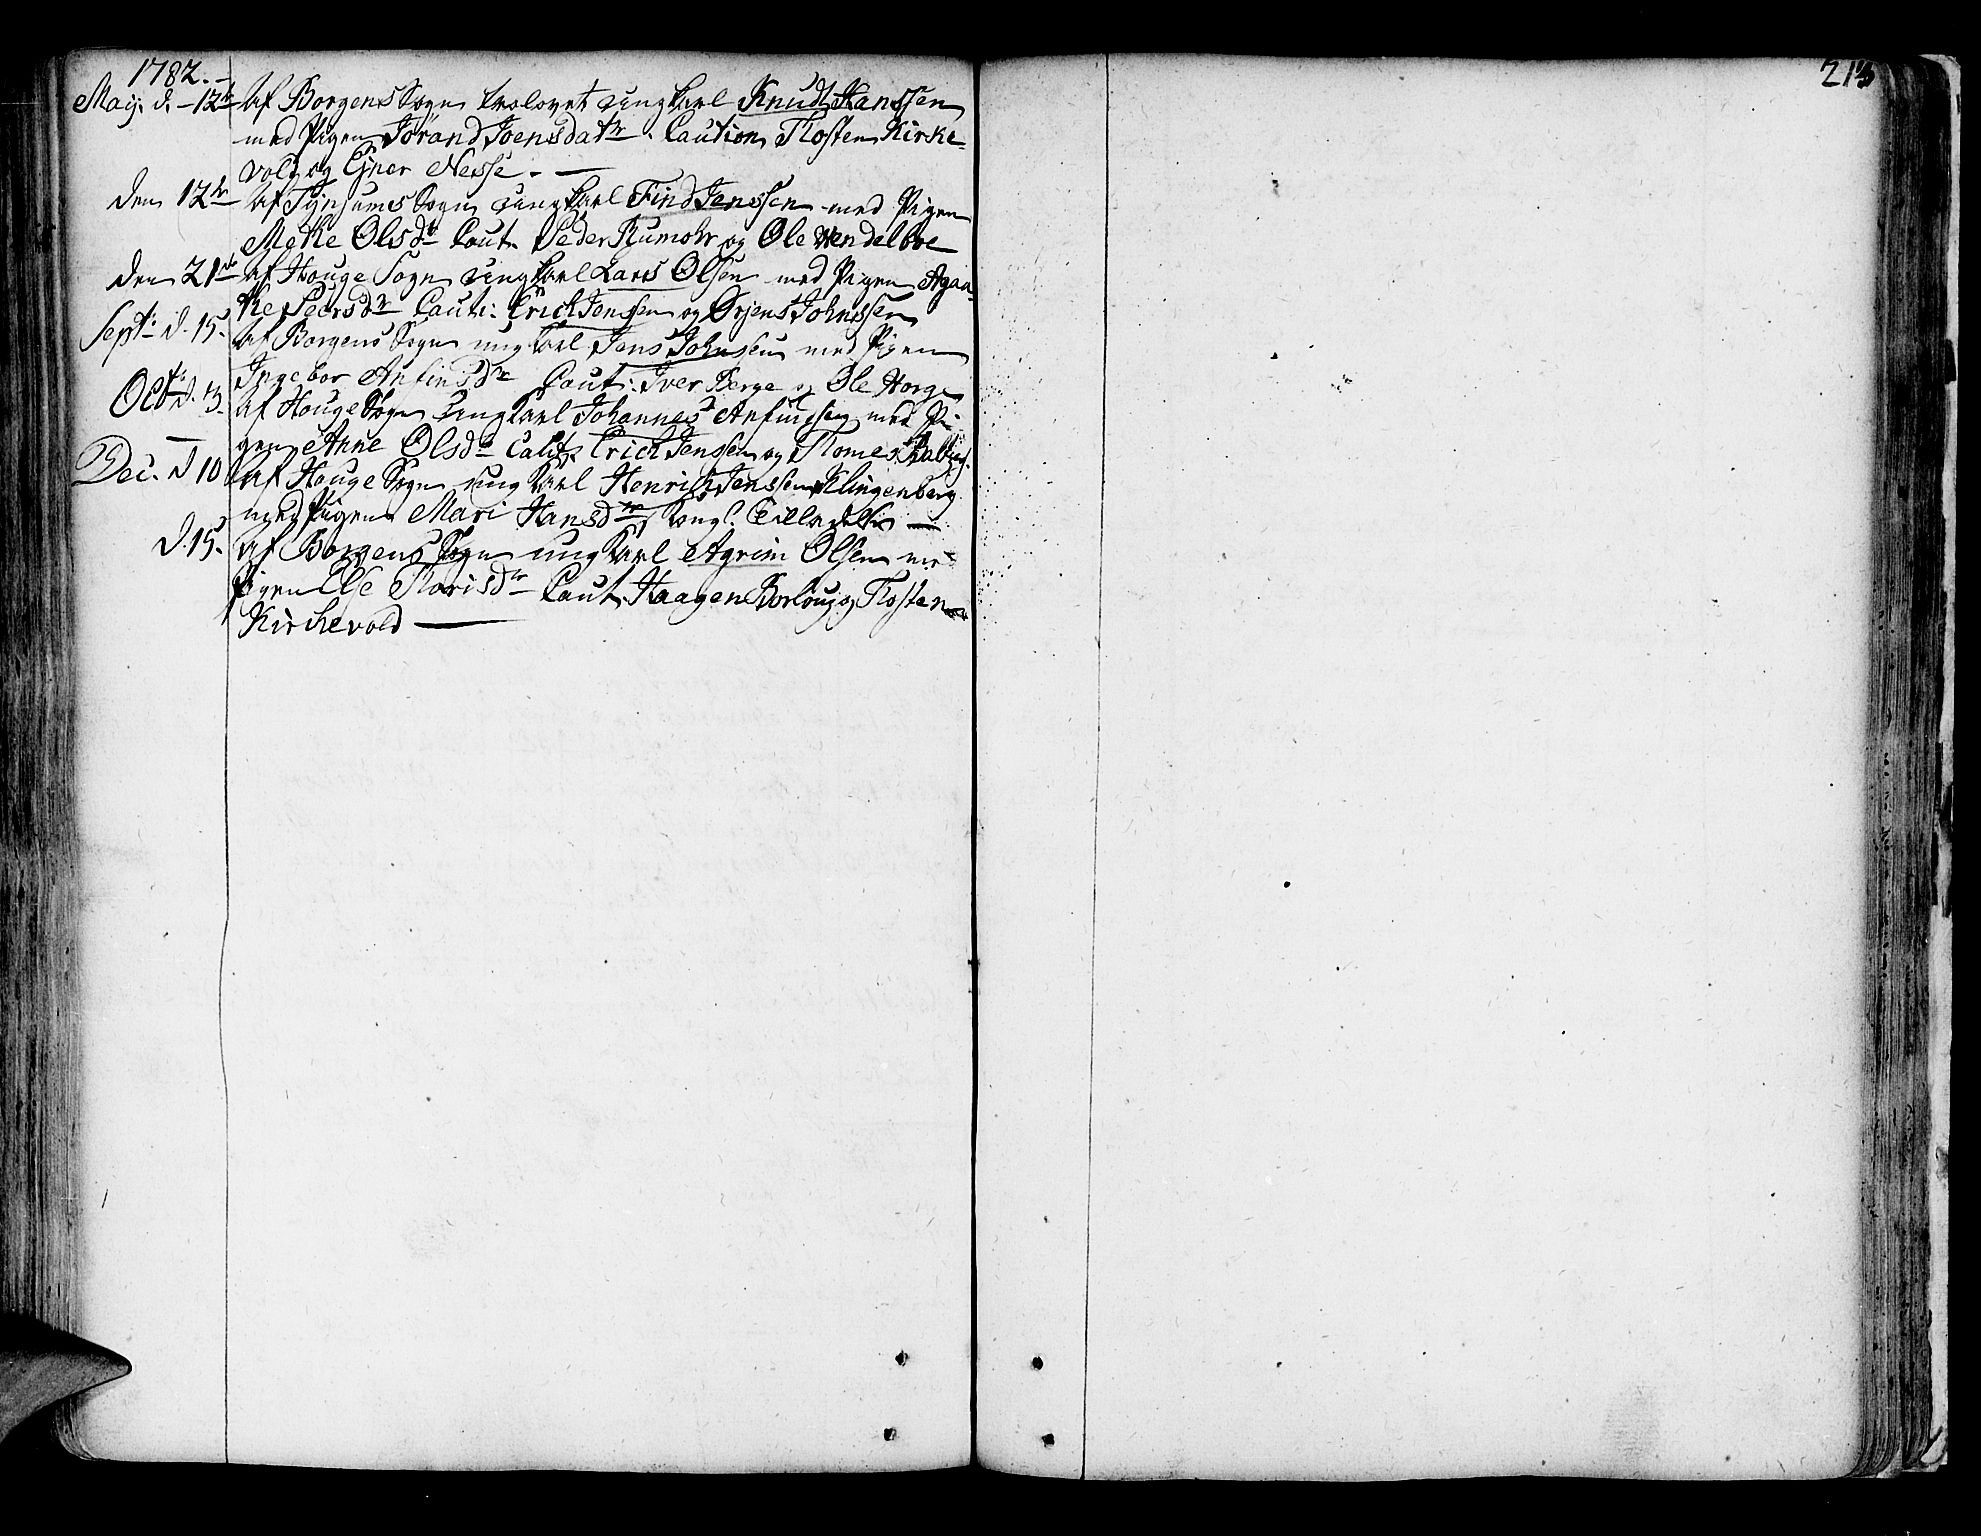 1782.-
Maij. d. -12te Af Borgens Sogn trolovet ungkarl Knud Hanssen
med Pigen Jörand Joensdatr. Caution Tosten Kirke-
vold og Ejner Nesse. -
den 12te Af Tÿnjums Sogn ungkarl Find Jenssen med Pigen
Metke Olsdr Caut. Peder Rumohr og Ole Wendelboe
den 21de af Houge Sogn ungkarl Lars Olsen med Pigen Agaa-
the Peersdr Caut: Erich Jenssen og Ørjens Johnssen
Septr d. 15. Af Borgens Sogn ungkarl Jens Johnsen med Pigen
Ingebor Anfinsdr Caut: Iver Berge og Ole Horge
Octr d. 13. af Houge Sogn ungkarl Johannes Anfindsen med Pi-
gen Anne Olsdr Caut. Erich Jensen og Tomes
Dec. d 10 af Houge Sogn ungkarl Henrich Jenssen Klingenberg
med Pigen Mari Hansdr Kongl. Tilladelse —
d. 15. af Borgens Sogn ungkarl Agrim Olsen med
Pigen Else Torisdr Caut. Haagen Borloug og Tosten
Kirchevold —
213